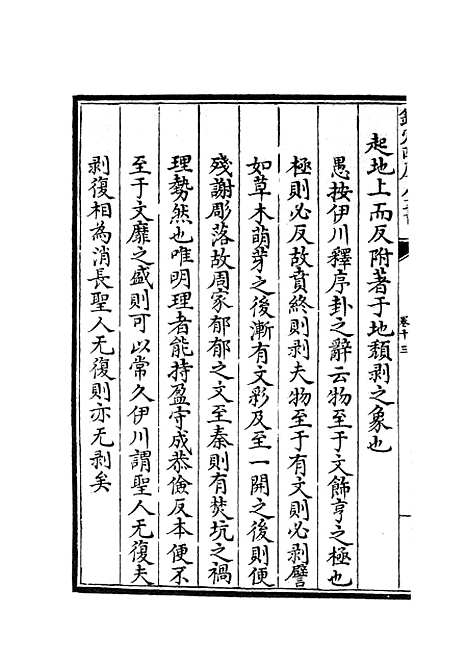 欽定四庫全書
卷十三
起地上而反附著于地頽剥之象也
愚按伊川釋序卦之辭云物至于文飾亨之極也
極則必反故賁終則剥夫物至于有文則必剥譬
如草木萌芽之後漸有文彩及至一開之後則便
殘謝彫落故周家郁郁之文至秦則有焚坑之禍
理勢然也唯明理者能持盈守成恭儉反本便不
至于文靡之盛則可以常久伊川謂聖人无復夫
剥復相為消長聖人无復則亦无剥矣